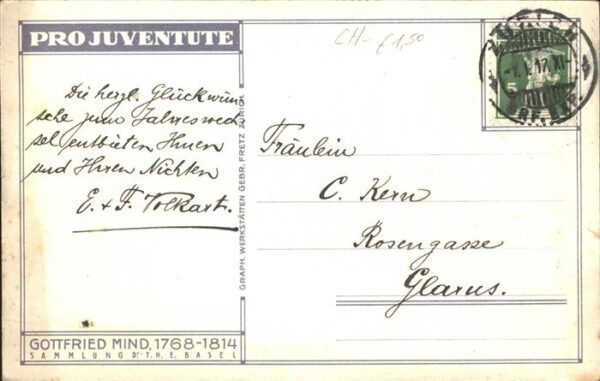 PRO JUVENTUTE
CH- £1,50
Die herzl. Glückwün-
sche zum Jahreswech-
sel entbieten Ihnen
und Ihren Nichten
E. & F. Volkart.
GRAPH. WERKSTÄTTEN GEBR. FRETZ ZÜRICH
5
Fräulein
C. Kern
Rosengasse
Glarus.
GOTTFRIED MIND, 1768-1814
SAMMLUNG DR. T. H. E. BASEL